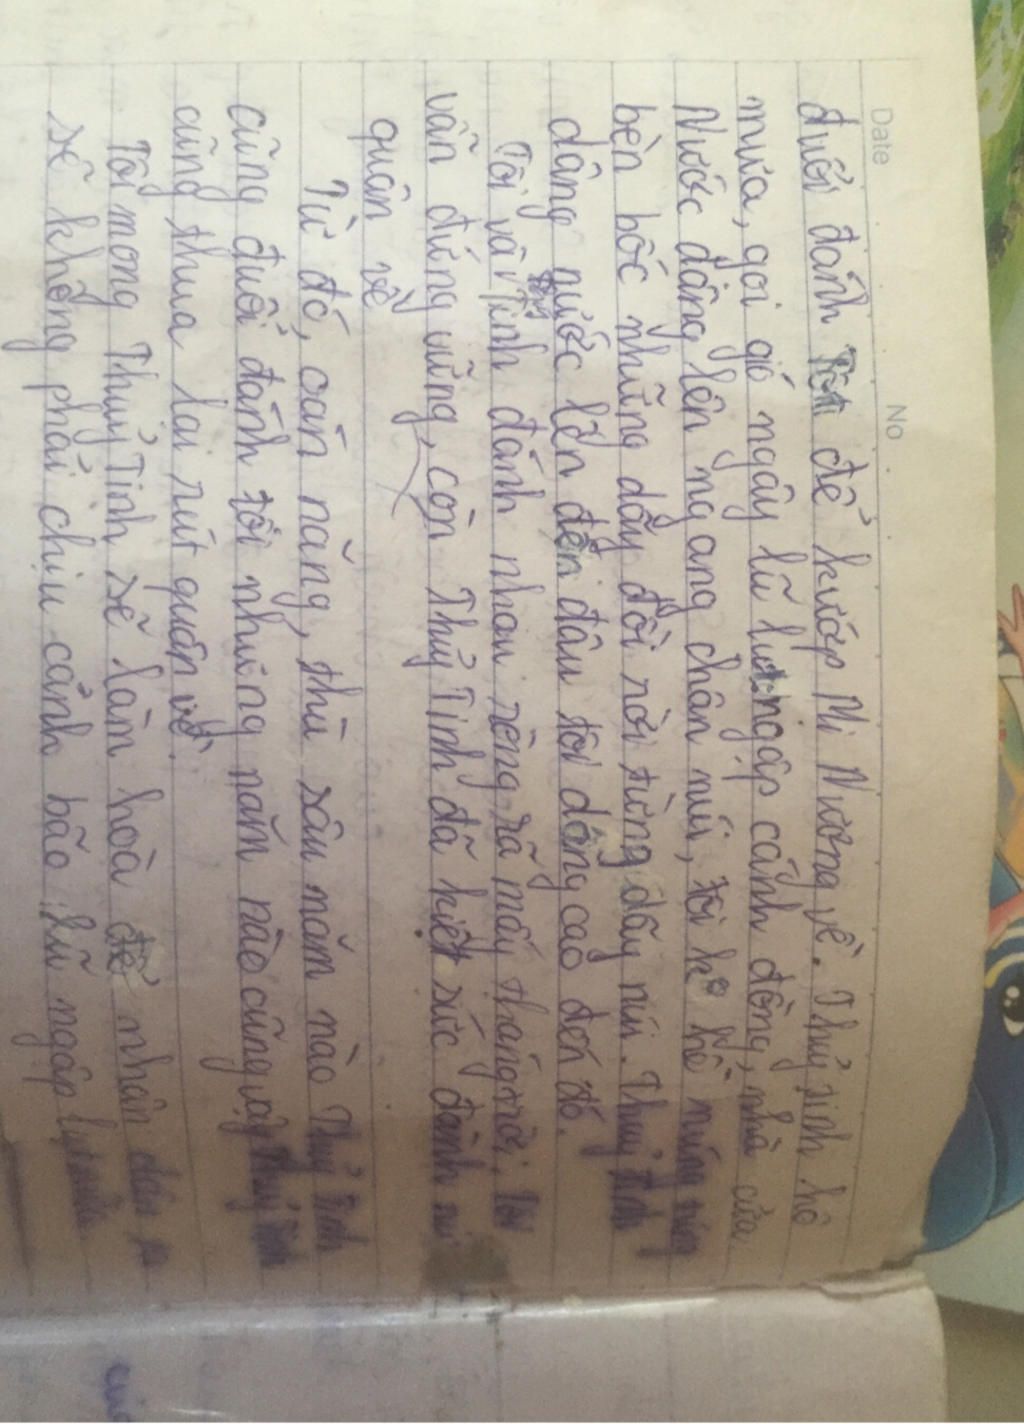 Date
No
đuổi đánh tôi để kướp Mị Nương về. Thuỷ sinh hô
mưa, gọi gió ngây lũ lụt ngập cánh đồng, nhà cửa
Nước dâng lên ngang chân núi, tôi k° hề núng núng
bèn bốc những dãy đồi rời từng dãy núi. Thuỷ Tinh
dâng nước lên đến đâu tôi dâng cao đến đó.
Tôi và Thuỷ Tinh đánh nhau ròng rã mấy tháng trời. Tôi
vẫn đứng vững, còn Thuỷ Tinh đã kiệt sức đành rú
quân về
Từ đó, oán nặng, thù sâu năm nào Thuỷ Tinh
cũng đuổi đánh tôi nhưng năm nào cũng vậy Thuỷ Tinh
cũng thua lại rút quân về.
Tôi mong Thuỷ Tinh sẽ làm hoà để nhân dân ta
sẽ không phải chịu cảnh bão lũ ngập lụt nữa